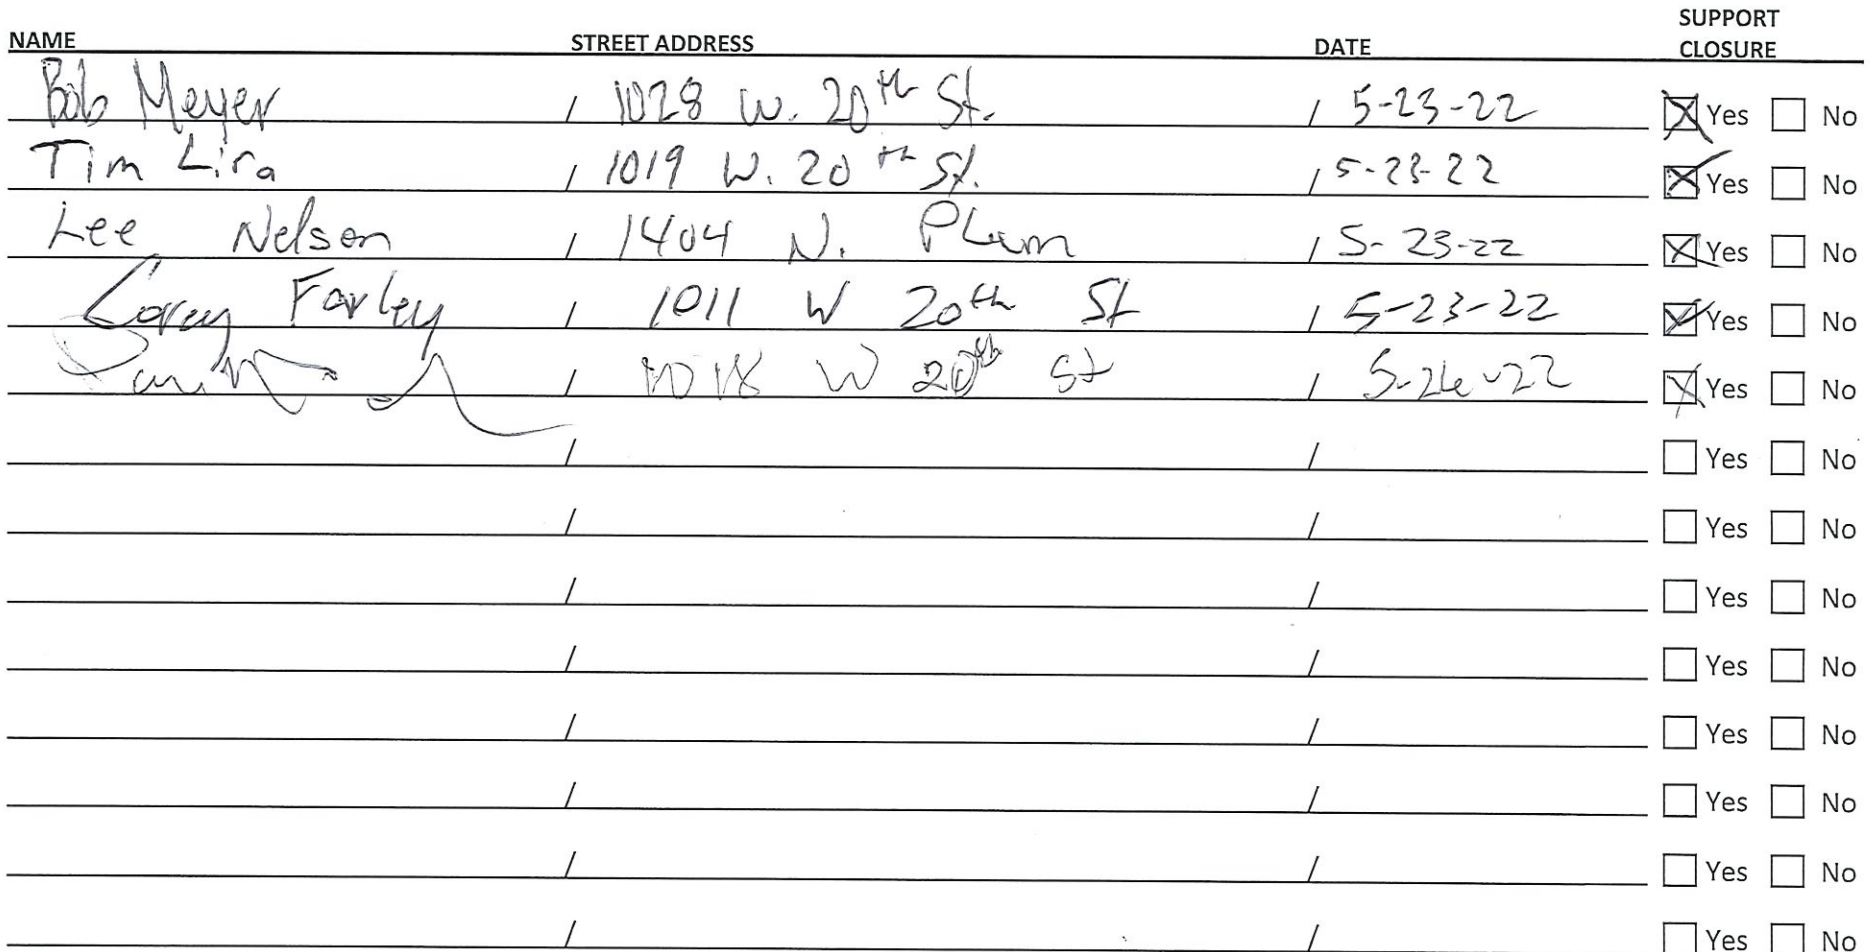 NAME STREET ADDRESS DATE SUPPORT CLOSURE
Bob Meyer / 1028 W. 20th St. / 5-23-22 ☒ Yes ☐ No
Tim Lira / 1019 W. 20th St. / 5-23-22 ☒ Yes ☐ No
Lee Nelson / 1404 N. Plum / 5-23-22 ☒ Yes ☐ No
Corey Farley / 1011 W 20th St / 5-23-22 ☒ Yes ☐ No
/ W 20th St / 5-26-22 ☒ Yes ☐ No
/ / ☐ Yes ☐ No
/ / ☐ Yes ☐ No
/ / ☐ Yes ☐ No
/ / ☐ Yes ☐ No
/ / ☐ Yes ☐ No
/ / ☐ Yes ☐ No
/ / ☐ Yes ☐ No
/ / ☐ Yes ☐ No